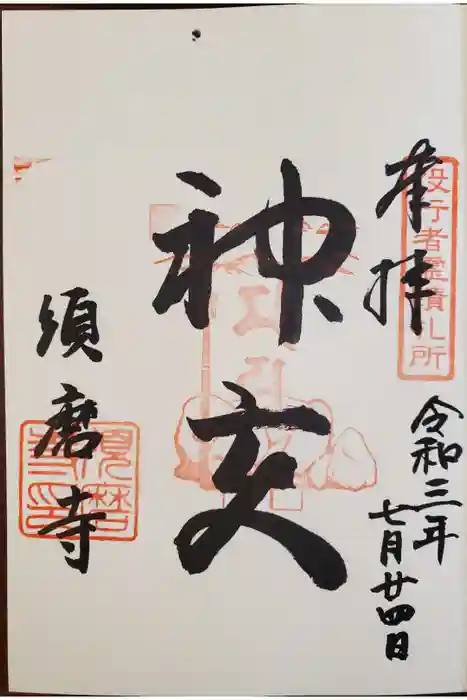 奉拝
役行者霊蹟札所
令和三年
七月廿四日
神変
須磨寺
須磨
寺印